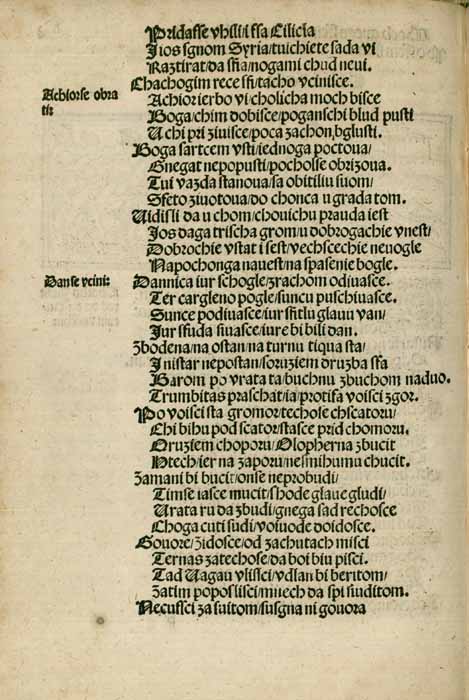 Pridasse vhilii ssa Cilicia
I ios sgnom Syria/tuichiete sada vi
Raztirat/da ssia/nogami chud nevi.
Chachogim rece ssi/tacho vcinisce.
Achiorse obra
tit:
Achior ierbo vi cholicha moch bisce
Boga/chim dobisce/poganschi blud pusti
U chi pri ziuisce/poca zachon, bglusti.
Boga sartcem vsti/iednoga poctoua/
Gnegat nepopusti/pocholsse obrizoua.
Tui vazda stanoua/sa obitiliu suom/
Sfeto ziuotoua/do chonca u grada tom.
Uidisli da u chom/chouichu prauda iest
Ios daga trischa grom/u dobrogachie vnest/
Dobrochie vstat i sest/vechscechie neuogle
Napochonga nauest/na spasenie bogle.
Danse vcini:
Dannica iur schogle/zrachom odiuasce.
Ter cargleno pogle/suncu puschiuasce.
Sunce podiuasce/iur ssitlu glauu van/
Iur sfuda siuasce/iure bi bili dan.
Zbodena/na ostan/na turnu tiqua sta/
I nistar nepostan/soruziem druzba ssa
Barom po vrata ta/buchnu zbuchom naduo.
Trumbitas praschat/ia/protifa voisci zgor.
Po voisci sta gromor/techose chscatoru/
Chi bihu pod scator/stasce prid chomoru.
Oruziem choporu/Olopherna zbucit
Htech/ier na zaporu/nesmihumu chucit.
Zamani bi bucit/onse neprobudi/
Timse iasce mucit/shode glaue gludi/
Urata ru da zbudi/gnega sad rechosce
Choga cuti sudi/voiuode doidosce.
Gouore/zidosce/od zachutach misci
Ternas zatechose/da boi biu pisci.
Tad Uagau vlisci/vdlan bi beritom/
Zatim poposlisci/mnech da spi siuditom.
Necussci za suitom/susgna ni gouora